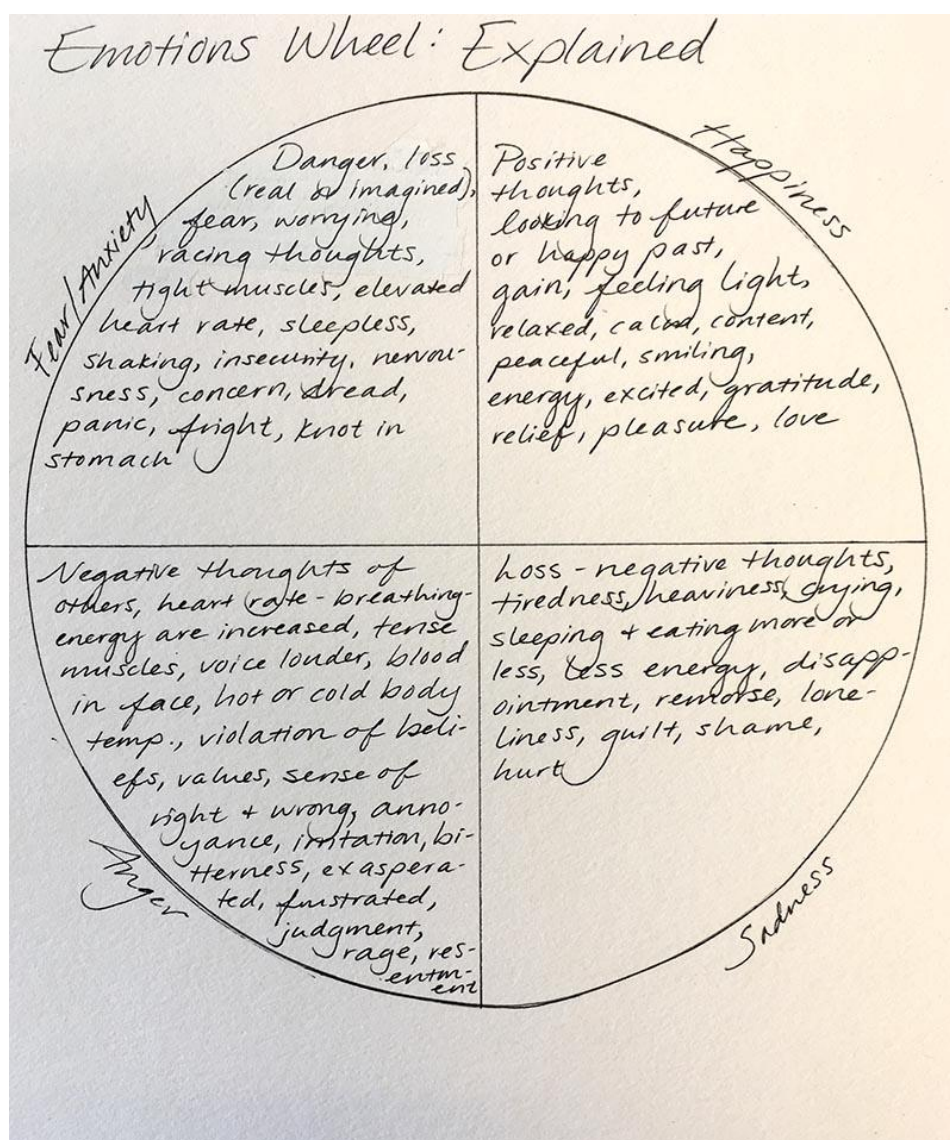 Emotions Wheel: Explained
Fear/Anxiety
Danger, loss
(real or imagined),
fear, worrying,
racing thoughts,
tight muscles, elevated
heart rate, sleepless,
shaking, insecurity, nervou-
sness, concern, dread,
panic, fright, knot in
stomach
Happiness
Positive
thoughts,
looking to future
or happy past,
gain, feeling light,
relaxed, calm, content,
peaceful, smiling,
energy, excited, gratitude,
relief, pleasure, love
Anger
Negative thoughts of
others, heart rate - breathing-
energy are increased, tense
muscles, voice louder, blood
in face, hot or cold body
temp., violation of beli-
efs, values, sense of
right + wrong, anno-
yance, irritation, bi-
tterness, exaspera-
ted, frustrated,
judgment,
rage, res-
entm-
ent
Sadness
Loss - negative thoughts,
tiredness, heaviness, crying,
sleeping + eating more or
less, less energy, disapp-
ointment, remorse, lone-
liness, guilt, shame,
hurt